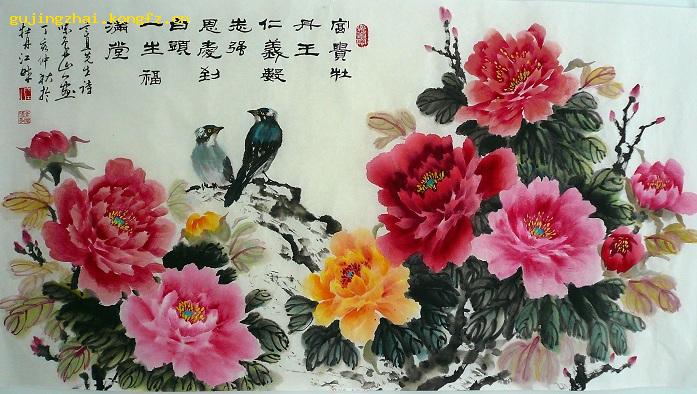 gujingzhai.kongfz.cn
富貴牡
丹王
仁義毅
志强
恩愛到
白頭
一生福
滿堂
先生诗
丁亥仲秋於
牡丹江畔